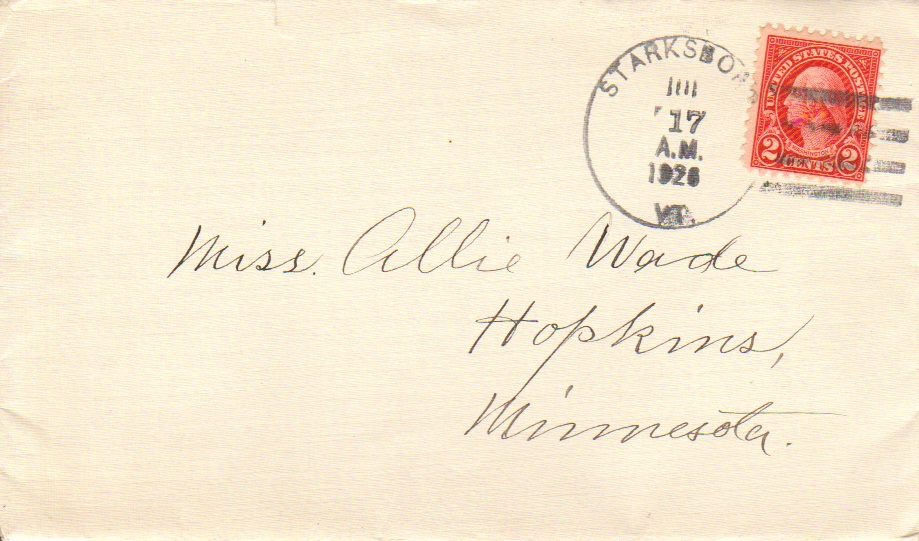 STARKSBORO
17
A.M.
1926
VT.
UNITED STATES POSTAGE
2 CENTS 2
Miss. Allie Wade
Hopkins,
Minnesota.